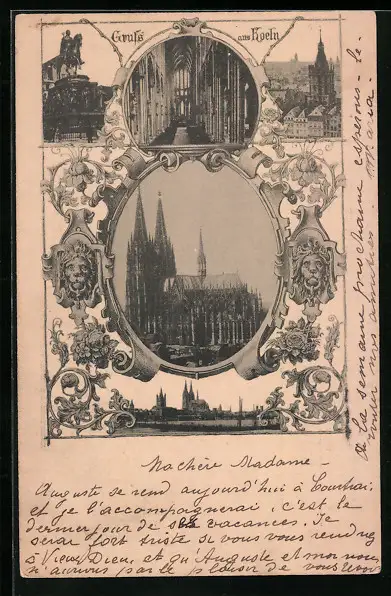 Gruss aus Koeln
Ma chère Madame -
Auguste se rend aujourd'hui à Courtrai
et je l'accompagnerai, c'est le
dernier jour de ses vacances. Je
serai fort triste si vous vous rendez
à Vieux Dieu, et qu' Auguste et moi nous
n'aurions pas le plaisir de vous revoir
De la semaine prochaine espérons-le
nos amitiés
Maria